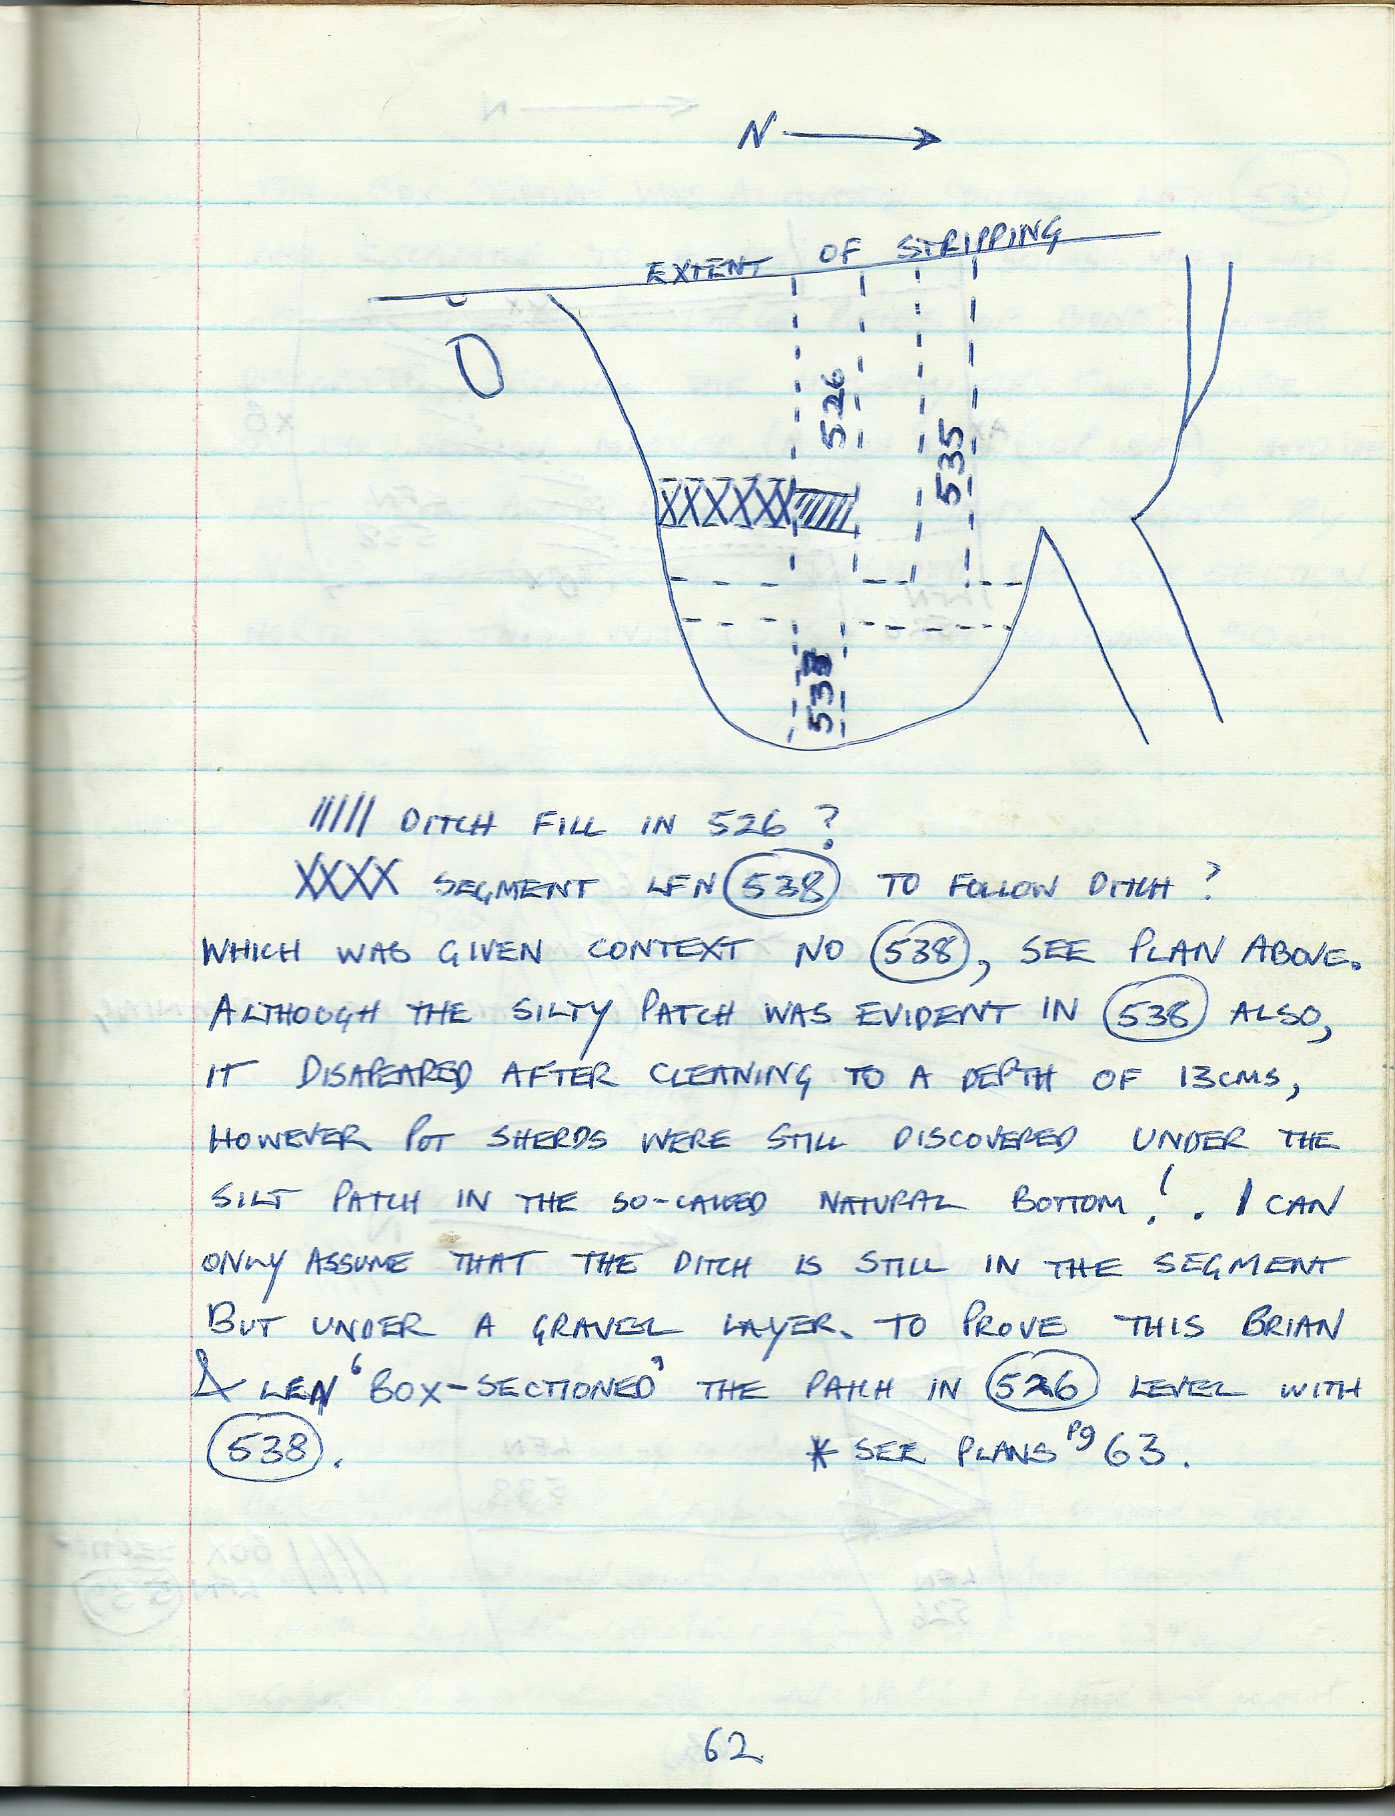 N
EXTENT OF STRIPPING
526
535
538
DITCH FILL IN 526 ?
XXXX SEGMENT LFN 538 TO FOLLOW DITCH ?
WHICH WAS GIVEN CONTEXT NO 538, SEE PLAN ABOVE.
ALTHOUGH THE SILTY PATCH WAS EVIDENT IN 538 ALSO,
IT DISAPEARED AFTER CLEANING TO A DEPTH OF 13CMS,
HOWEVER POT SHERDS WERE STILL DISCOVERED UNDER THE
SILT PATCH IN THE SO-CALLED NATURAL BOTTOM!. I CAN
ONLY ASSUME THAT THE DITCH IS STILL IN THE SEGMENT
BUT UNDER A GRAVEL LAYER. TO PROVE THIS BRIAN
& LEN 'BOX-SECTIONED' THE PATCH IN 526 LEVEL WITH
538.
* SEE PLANS Pg 63.
62